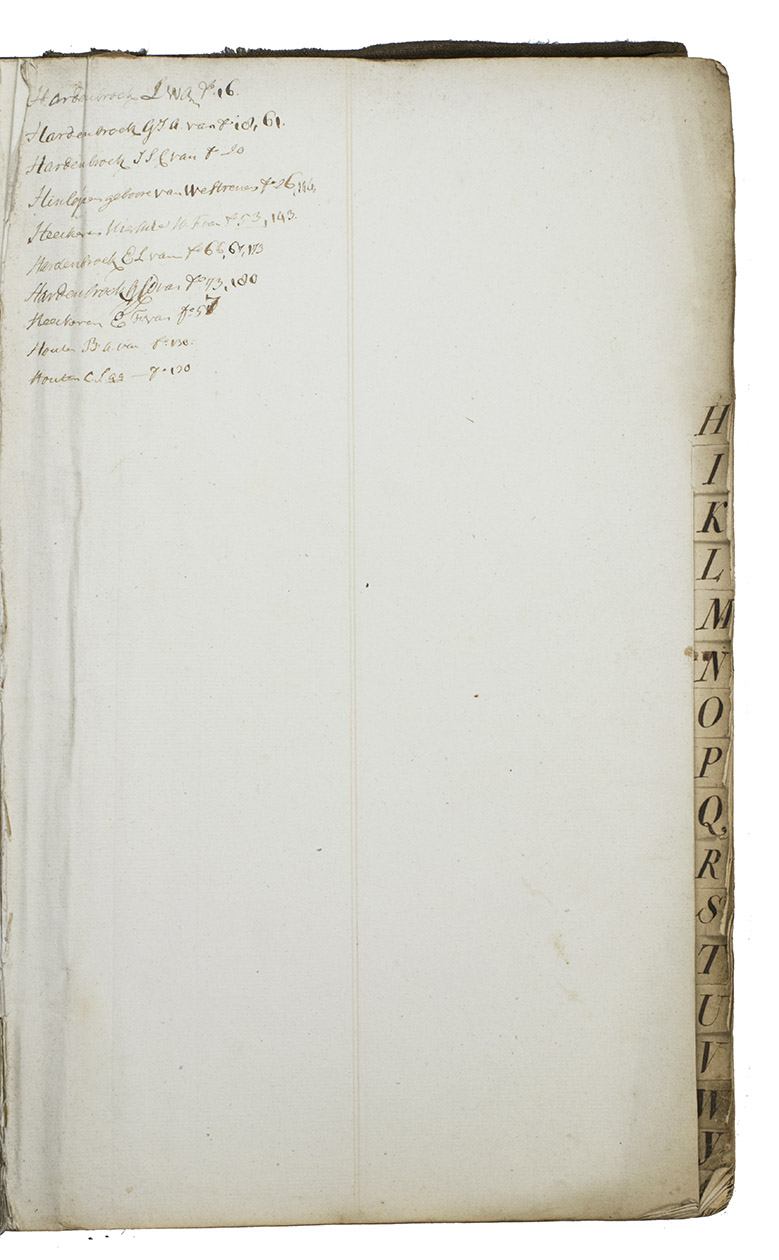 Hardenbroek L W a fo. 16.
Hardenbroek G J A. van fo. 18, 61.
Hardenbroek J S C van fo 20
Hinlopen geboore van Westrenen fo 26, 146.
Heeckeren van fo 53, 143.
Hardenbroek E L van fo 66, 67, 173
Hardenbroek G C D van fo 73, 180
Heeckeren E F van fo 57
Houten B. A. van fo 130.
Houten C L fo 130
H
I
K
L
M
N
O
P
Q
R
S
T
U
V
W
Y